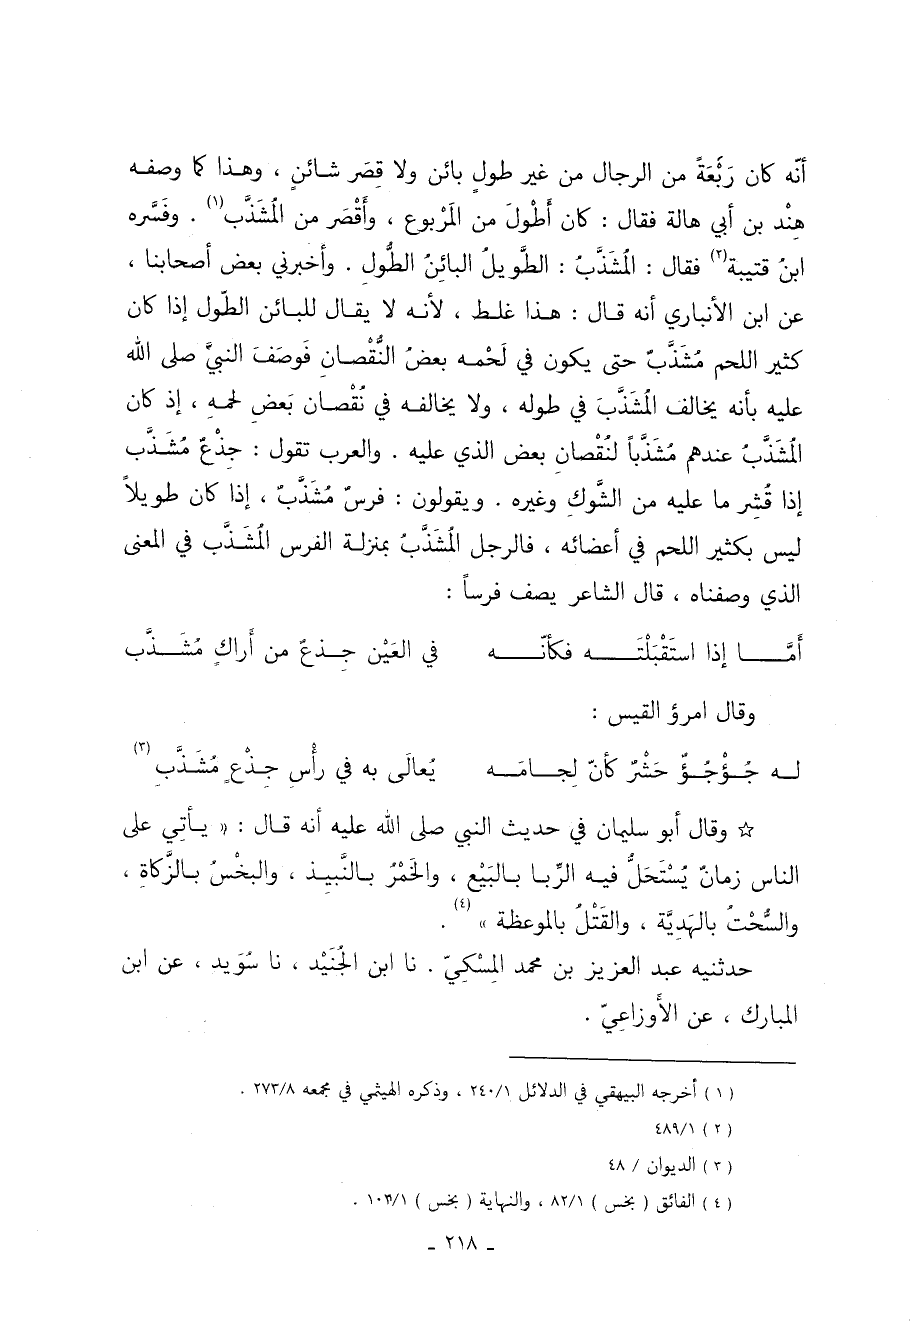 أنّه كان رَبْعَةً من الرجال من غير طولٍ بائن ولا قِصَر شائنٍ ، وهذا كما وصفه
هِنْد بن أبي هالة فقال : كان أَطْولَ من المَرْبوع ، وأَقْصَر من المُشَذَّب(١) . وفَسَّره
ابنُ قتيبة(٢) فقال : المُشَذَّبُ : الطَّويلُ البائنُ الطُّول . وأخبرني بعض أصحابنا ،
عن ابن الأنباري أنه قال : هذا غلط ، لأنه لا يقال للبائن الطّول إذا كان
كثير اللحم مُشَذَّبٌ حتى يكون في لَحْمه بعضُ النُّقْصانِ فَوصَفَ النبيَّ صلى الله
عليه بأنه يخالف المُشَذَّبَ في طوله ، ولا يخالفه في نُقْصان بَعض لحمه ، إذ كان
المُشَذَّبُ عندهم مُشَذَّباً لنُقْصان بعض الذي عليه . والعرب تقول : جِذْعٌ مُشَذَّب
إذا قُشِر ما عليه من الشَّوكِ وغيره . ويقولون : فرسٌ مُشَذَّبٌ ، إذا كان طويلاً
ليس بكثير اللحم في أعضائه ، فالرجل المُشَذَّبُ بمنزلة الفرس المُشَذَّب في المعنى
الذي وصفناه ، قال الشاعر يصف فرساً :
أمَّا إذا استَقْبَلْتَه فكأنّه في العَيْن جِذعٌ من أَراكٍ مُشَذَّب
وقال امرؤ القيس :
له جُؤْجُؤٌ حَشْرٌ كأنّ لِجامَه يُعالَى به في رأْسِ جِذْعٍ مُشَذَّبِ(٣)
☆ وقال أبو سليمان في حديث النبي صلى الله عليه أنه قال : « يأتي على
الناس زمانٌ يُسْتَحَلُّ فيه الرِّبا بالبَيْع ، والخَمْرُ بالنَّبيذ ، والبخْسُ بالزَّكاةِ ،
والسُّحْتُ بالهَدِيَّة ، والقَتْلُ بالموعظة »(٤) .
حدثنيه عبد العزيز بن محمد المِسْكِيّ . نا ابن الجُنَيْد ، نا سُوَيد ، عن ابن
المبارك ، عن الأَوزاعيّ .
( ١ ) أخرجه البيهقي في الدلائل ٢٤٠/١ ، وذكره الهيثمي في مجمعه ٢٧٣/٨ .
( ٢ ) ٤٨٩/١
( ٣ ) الديوان / ٤٨
( ٤ ) الفائق ( بخس ) ٨٢/١ ، والنهاية ( بخس ) ١٠٣/١ .
ـ ٢١٨ ـ